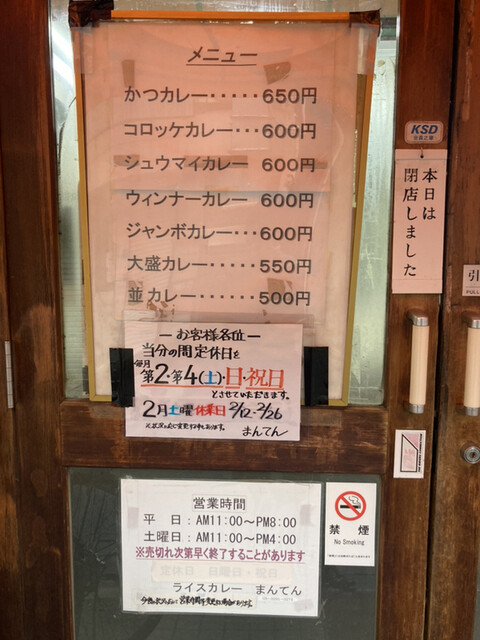 メニュー
かつカレー・・・・・650円
コロッケカレー・・・600円
シュウマイカレー 600円
ウィンナーカレー 600円
ジャンボカレー・・・600円
大盛カレー・・・・550円
並カレー・・・・・500円
KSD
本日は
閉店しました
引
PULL
ーお客様各位ー
当分の間定休日を
毎月
第2・第4(土)・日・祝日
とさせていただきます。
2月土曜休業日 2/12・2/26
まんてん
営業時間
平 日：AM11:00〜PM8:00
土曜日：AM11:00〜PM4:00
※売切れ次第早く終了することがあります
定休日 日曜日・祝日
ライスカレー まんてん
禁煙
No Smoking